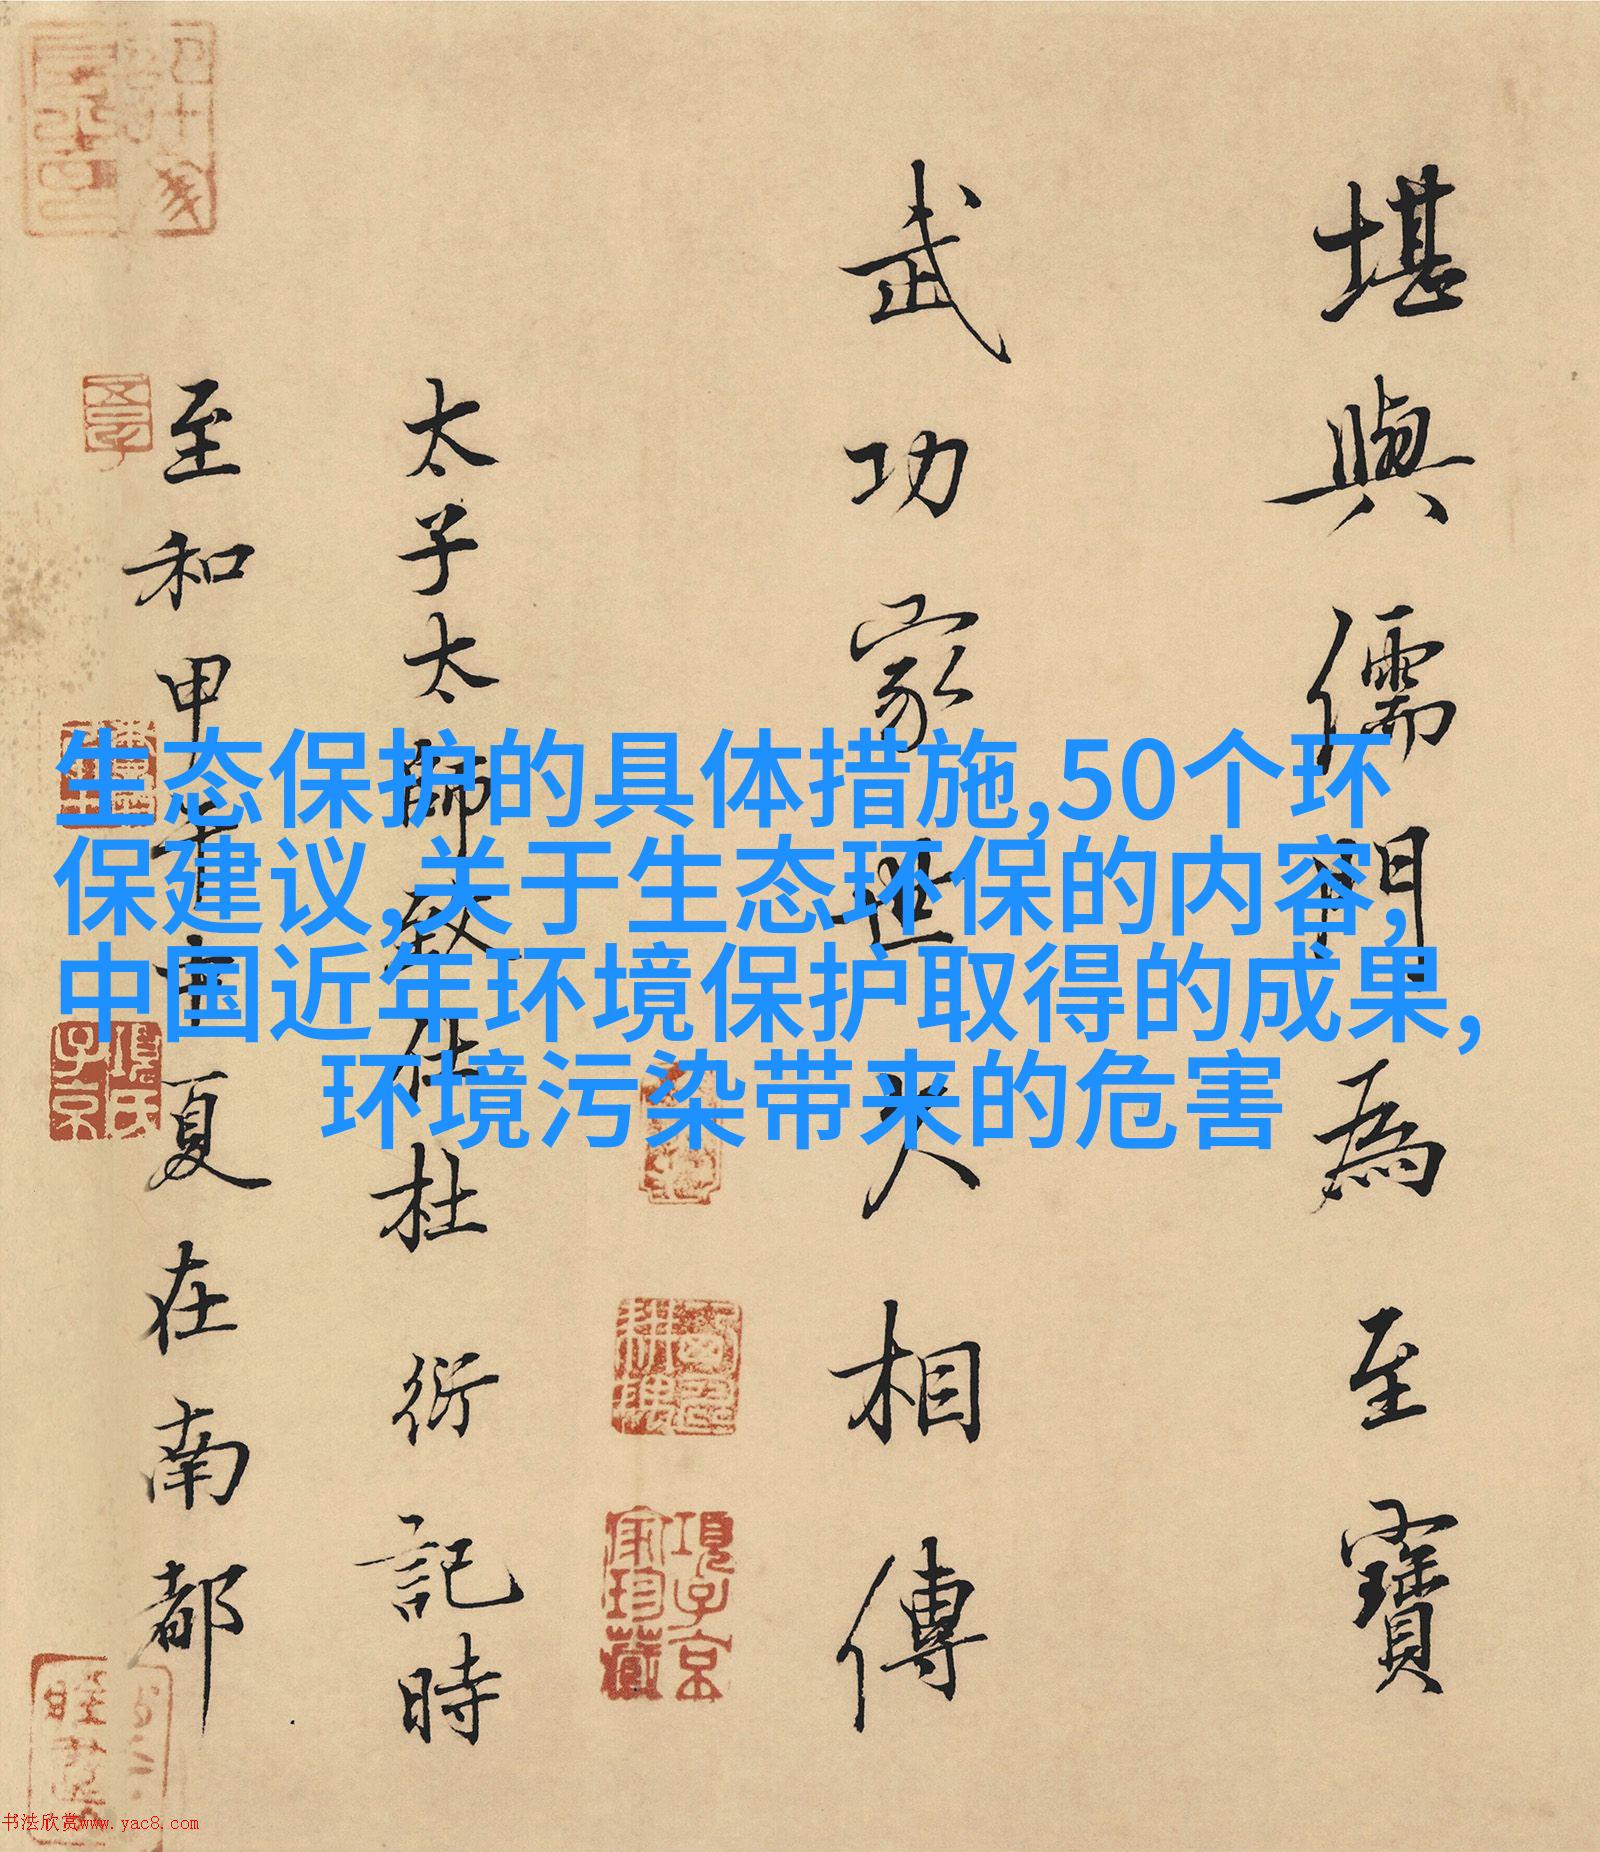 堪輿儒門為至寶
武功家世久相傳
太子太師致仕杜衍記時
至和甲午季夏在南都
生态保护的具体措施,50个环
保建议,关于生态环保的内容,
中国近年环境保护取得的成果,
环境污染带来的危害
項子京
家珍藏
項氏
子京
书法欣赏www.yac8.com